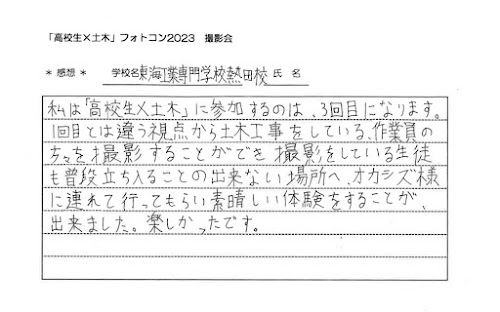 「高校生×土木」フォトコン2023　撮影会
＊ 感想 ＊　学校名 東海工業専門学校熱田校 氏 名
私は「高校生×土木」に参加するのは、3回目になります。
1回目とは違う視点から土木工事をしている、作業員の
方々を撮影することができ撮影をしている生徒
も普段立ち入ることの出来ない場所へ、オカシズ様
に連れて行ってもらい素晴しい体験をすることが、
出来ました。楽しかったです。